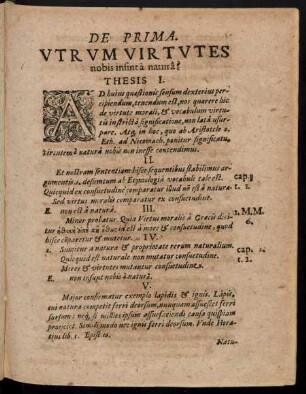 DE PRIMA.
VTRUM VIRTVTES
nobis insint à naturâ?
THESIS I.
AD huius quæstionis sensum dexterius per-
cipiendum, tenendum est, nos quærere hic
de virtute morali, & vocabulum virtu-
tis in strictâ significatione, non latâ usur-
pare. Atq; in hoc, quo ab Aristotele 2.
Eth. ad Nicomach. ponitur significatu,
virtutem à naturâ nobis non inesse contendimus.
II.
Et nostram sententiam hisce sequentibus stabilimus ar-
gumentis. 1. desumtum ab Etymologiâ vocabuli tale est.
Quicquid ex consuetudine comparatur illud nō est à natura.
Sed virtus moralis comparatur ex consuetudine.
E. non est à naturâ.
III.
Minor probatur. Quia Virtus moralis à Græcis dicitur
est à more & consuetudine, quod
hisce comparetur & mutetur.
IV.
2. Sumitur à natura & proprietate rerum naturalium.
Quicquid est naturale non mutatur consuetudine.
Mores & virtutes mutantur consuetudine.
E. non insunt nobis à naturâ.
V.
Major confirmatur exemplo lapidis & ignis. Lapis,
cui naturâ competit ferri deorsum, nunquam assuescet ferri
sursum: neq; si millies ipsum assuefaciendi causa quispiam
projiciet. Simili modo nec ignis ferri deorsum. Unde Hora-
tius lib. 1. Epist. 10.
Natu-
cap.
t. 1.
1. M. M.
c. 6.
cap.
t. 2.